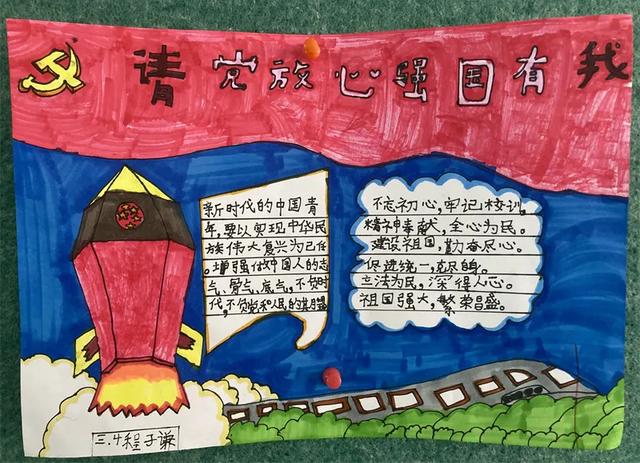 请党放心强国有我
新时代的中国青
年，要以实现中华民
族伟大复兴为己任
。增强做中国人的志
气、骨气、底气，不负时
代，不负党和人民的
不忘初心，牢记校训，
精神奉献，全心为民。
建设祖国，勤奋尽心。
促进统一，
立法为民，深得人心。
祖国强大，繁荣昌盛。
三.4程子谦